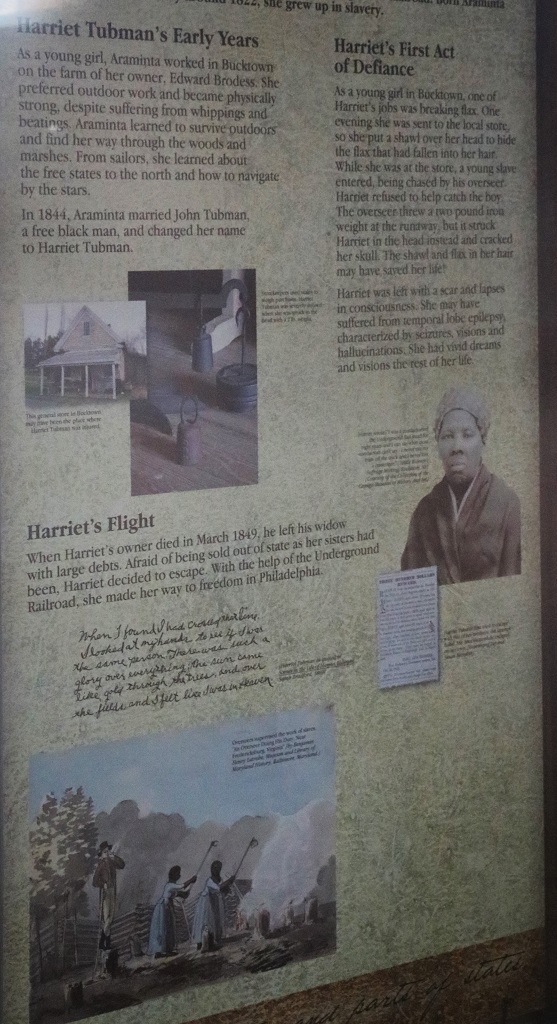 she grew up in slavery.
Harriet Tubman's Early Years
As a young girl, Araminta worked in Bucktown
on the farm of her owner, Edward Brodess. She
preferred outdoor work and became physically
strong, despite suffering from whippings and
beatings. Araminta learned to survive outdoors
and find her way through the woods and
marshes. From sailors, she learned about
the free states to the north and how to navigate
by the stars.
In 1844, Araminta married John Tubman,
a free black man, and changed her name
to Harriet Tubman.
This general store in Bucktown
may have been the place where
Harriet Tubman was injured.
Harriet's First Act
of Defiance
As a young girl in Bucktown, one of
Harriet's jobs was breaking flax. One
evening she was sent to the local store,
so she put a shawl over her head to hide
the flax that had fallen into her hair.
While she was at the store, a young slave
entered, being chased by his overseer.
Harriet refused to help catch the boy.
The overseer threw a two pound iron
weight at the runaway, but it struck
Harriet in the head instead and cracked
her skull. The shawl and flax in her hair
may have saved her life!
Harriet was left with a scar and lapses
in consciousness. She may have
suffered from temporal lobe epilepsy,
characterized by seizures, visions and
hallucinations. She had vivid dreams
and visions the rest of her life.
Harriet's Flight
When Harriet's owner died in March 1849, he left his widow
with large debts. Afraid of being sold out of state as her sisters had
been, Harriet decided to escape. With the help of the Underground
Railroad, she made her way to freedom in Philadelphia.
When I found I had crossed that line,
I looked at my hands to see if I was
the same person. There was such a
glory over everything; the sun came
like gold through the trees, and over
the fields, and I felt like I was in Heaven
and parts of states